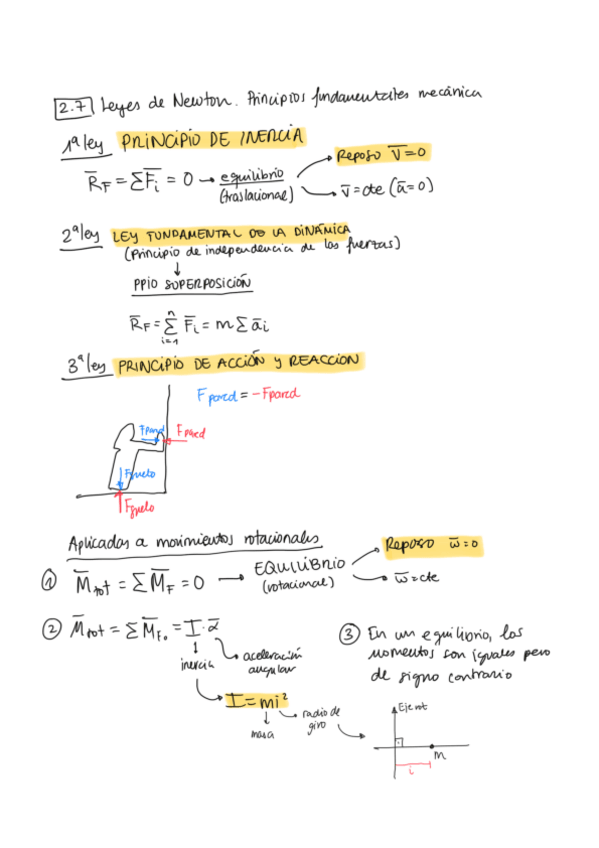 2.7 Leyes de Newton. Principios fundamentales mecánica
1ª ley PRINCIPIO DE INERCIA
R̅_F = ΣF̅i = 0 → equilibrio (traslacional)
Reposo V̅=0
v̅=cte (a̅=0)
2ª ley LEY FUNDAMENTAL DE LA DINÁMICA
(principio de independencia de las fuerzas)
↓
PPIO SUPERPOSICIÓN
R̅_F = Σ_{i=1}^{n} F̅i = m Σ a̅i
3ª ley PRINCIPIO DE ACCIÓN y REACCION
F pared = -F pared
F pared F pared
Fsuelo
Fsuelo
Aplicadas a movimientos rotacionales
① M̅tot = Σ M̅_F = 0 → EQUILIBRIO (rotacional)
Reposo w̅=0
w̅=cte
② M̅tot = Σ M̅_F. = I·α̅
inercia
aceleración angular
I = mi²
masa
radio de giro
③ En un equilibrio, los
momentos son iguales pero
de signo contrario
Eje rot
m
i